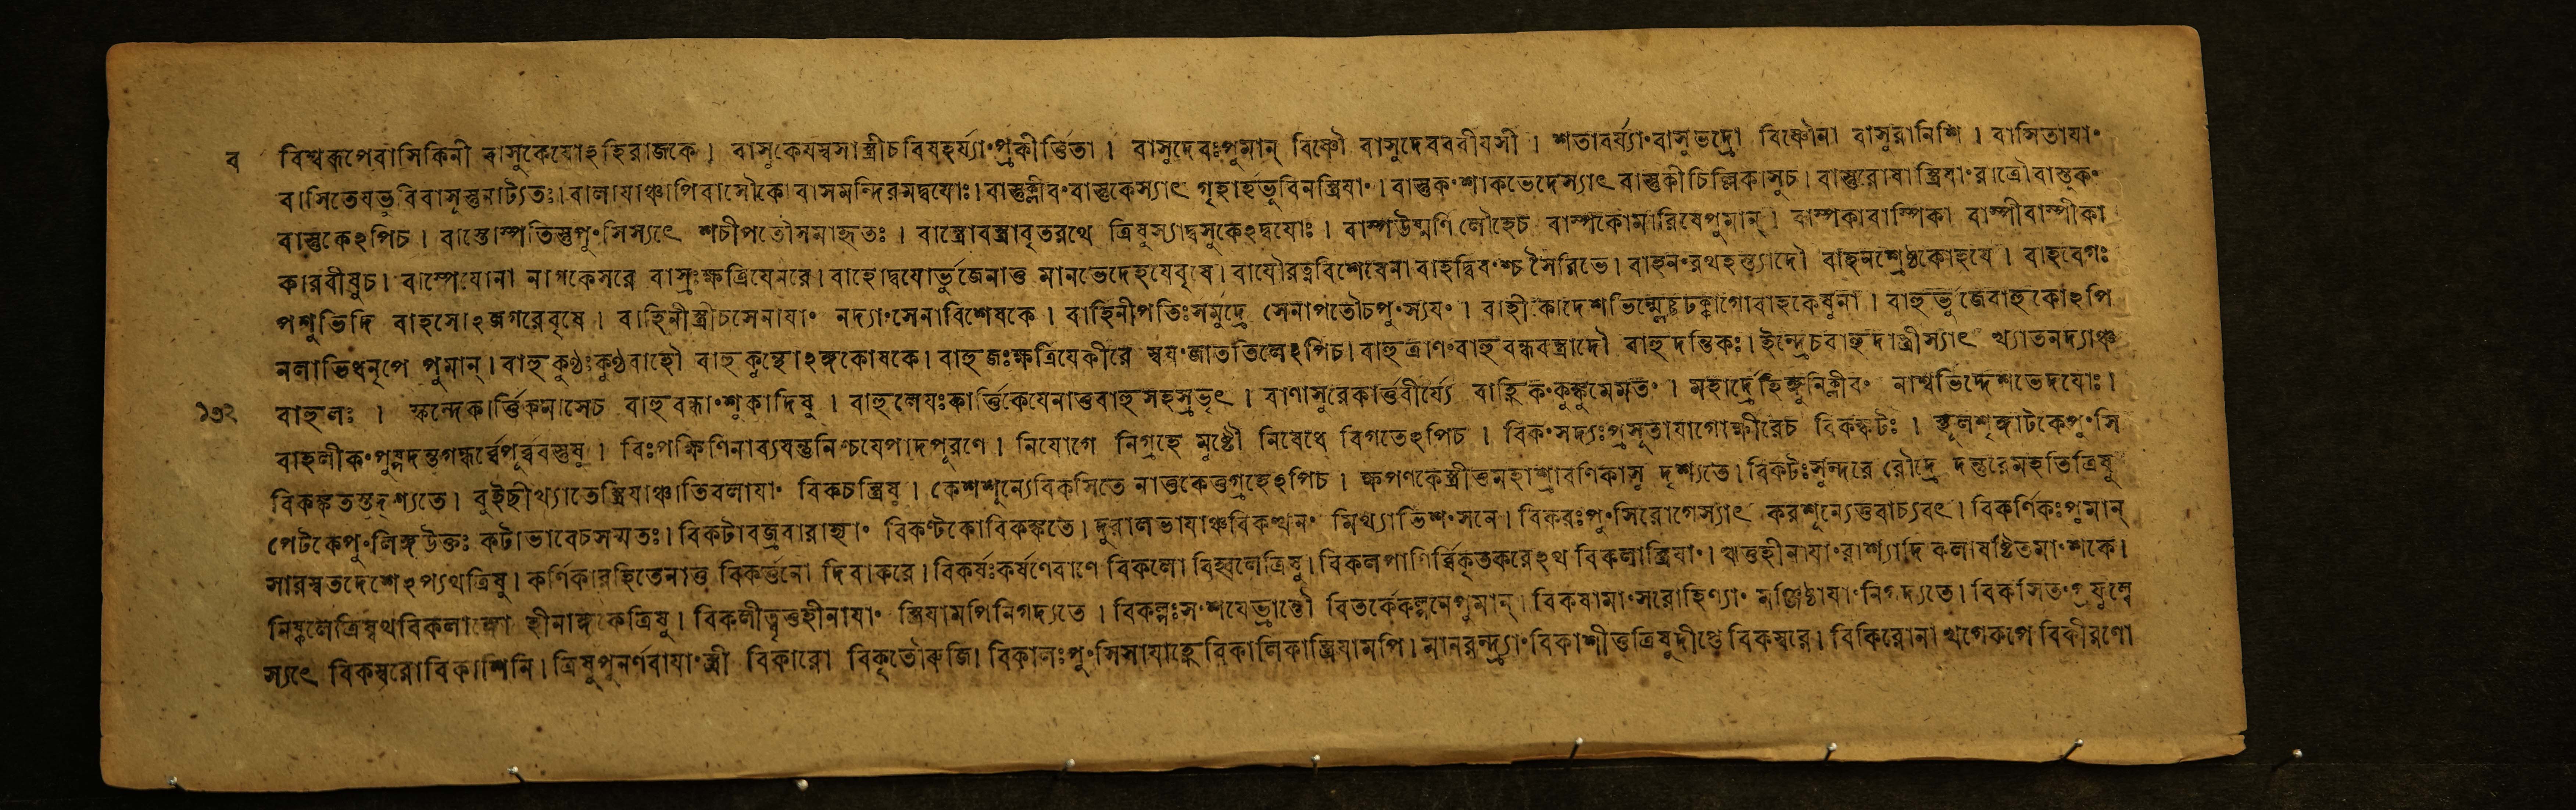 ব বিশ্বরূপেবাসিকিনী বাসুকেযোঽহিরাজকে। বাসুকেযম্বসাস্ত্রীচবিষহর্য্যাং প্রকীর্ত্তিতা। বাসুদেবঃপুমান্ বিষ্ণৌ বাসুদেববরীযসী। শতাবর্য্যাংবাসুভদ্রো বিষ্ণৌনা বাসুরানিশি। বাসিতাযাং
বাসিতেযত্ত্ববিবাসূস্তুনাট্যতঃ। বালাযাঞ্চাপিবাসৌকো বাসমন্দিরমদ্বযোঃ। বাস্তুক্লীবংবাস্তুকেস্যাৎ গৃহার্হভুবিনস্ত্রিযাং। বাস্তুকংশাকভেদেস্যাৎ বাস্তুকীচিল্লিকাসুচ। বাস্তুরোষাস্ত্রিযাংরাত্রৌবাস্তূকং
বাস্তুকেঽপিচ। বাস্তোস্পতিস্তুপুংসিস্যাৎ শচীপতৌসমাহৃতঃ। বাস্ত্রোবস্ত্রাবৃতরথে ত্রিষুস্যাদ্বসুকেঽদ্বযোঃ। বাস্পউষ্মণিলৌহেচ বাস্পকোমারিষেপুমান্। বাস্পকাবাস্পিকা বাস্পীবাস্পীকা
কারবীষুচ। বাস্পেযোনা নাগকেসরে বাস্রঃক্ষত্রিযেনরে। বাহোদ্বযোর্ভুজেনাত্ত মানভেদেহযেবৃষে। বাযৌরত্নবিশেষেনা বাহদ্বিষংশ্চ সৈরিভে। বাহনংরথহস্ত্যাদৌ বাহনশ্রেষ্ঠকোহযে। বাহবেগঃ
পশুভিদি বাহসোঽজগরেবৃষে। বাহিনীস্ত্রীচসেনাযাং নদ্যাংসেনাবিশেষকে। বাহিনীপতিঃসমুদ্রে সেনাপতৌচপুংস্যযং। বাহীকোদেশভিম্মেচ্ছটক্কাগোবাহকেষুনা। বাহুর্ভুজেবাহুকোঽপি
নলাভিধনৃপে পুমান্। বাহুকুণ্ঠঃকুণ্ঠবাহৌ বাহুকুন্থোঽঙ্গকোষকে। বাহুজঃক্ষত্রিযেকীরে স্বযংজাততিলেঽপিচ। বাহুত্রাণংবাহুবন্ধবস্ত্রাদৌ বাহুদন্তিকঃ। ইন্দ্রেচবাহুদাস্ত্রীস্যাৎ খ্যাতনদ্যাঞ্চ
১৩২ বাহুলঃ। স্কন্দেকার্ত্তিকমাসেচ বাহুবন্ধাংশুকাদিষু। বাহুলেযঃকার্ত্তিকেযেনাত্তবাহুসহস্রভৃৎ। বাণাসুরেকার্ত্তবীর্য্যে বাহ্লিকংকুঙ্কুমেমতং। মহার্দ্রেহিঙ্গুনিক্লীবং নাশ্বভিদ্দেশভেদযোঃ।
বাহলীকংপুষ্পদন্তগন্ধর্ব্বেপূর্ব্ববস্তুষু। বিঃপক্ষিণিনাব্যযন্তুনিশ্চযেপাদপূরণে। নিযোগে নিগ্রহে মুষ্টৌ নিষেধে বিগতেঽপিচ। বিকংসদ্যঃপ্রসূতাযাগোক্ষীরেচ বিকঙ্কটঃ। স্থূলশৃঙ্গাটকেপুংসি
বিকঙ্কতস্তদৃশ্যতে। বুইছীখ্যাতেস্ত্রিযাঞ্চাতিবলাযাং বিকচস্ত্রিষু। কেশশূন্যেবিকসিতে নাত্তকেতুগ্রহেঽপিচ। ক্ষপণকেস্ত্রীতুমহাশ্রাবণিকাসু দৃশ্যতে। বিকটঃসুন্দরে রৌদ্রে দন্তুরেমহতিত্রিষু
পেটকেপুংলিঙ্গউক্তঃ কটাভাবেচসম্মতঃ। বিকটাবজ্রবারাহ্যাং বিকণ্টকোবিকঙ্কতে। দুরালভাযাঞ্চবিকত্থনং মিথ্যাভিশংসনে। বিকরঃপুংসিরোগেস্যাৎ করশূন্যেত্তবাচ্যবৎ। বিকর্ণিকঃপুমান্
সারস্বতদেশেঽপ্যথত্রিষু। কর্ণিকারহিতেনাত্ত বিকর্ত্তনো দিবাকরে। বিকর্ষঃকর্ষণেবাণে বিকলো বিহ্বলেত্রিষু। বিকলপাণির্ব্বিকৃতকরেঽথ বিকলাস্ত্রিযাং। ঋতুহীনাযাংরাশ্যাদি কলাষষ্টিতমাংশকে।
নিষ্কলেত্রিষ্বথবিকলাঙ্গো হীনাঙ্গকেত্রিষু। বিকলীত্বৃত্তহীনাযাং স্ত্রিযামপিনিগদ্যতে। বিকল্পঃসংশযেভ্রান্তৌ বিতর্কেকল্পনেপুমান্। বিকষামাংসরোহিণ্যাং মঞ্জিষ্ঠাযাংনিগদ্যতে। বিকসিতংপ্রফুল্লে
স্যাৎ বিকস্বরোবিকাশিনি। ত্রিষুপুনর্ণবাযাংস্ত্রী বিকারো বিকৃতৌরুজি। বিকালঃপুংসিসাযাহ্নে বিকালিকাস্ত্রিযামপি। মানরন্ধ্র্যাংবিকাশীত্তত্রিষুদীপ্তে বিকস্বরে। বিকিরোনা খগেকূপে বিকীরণো